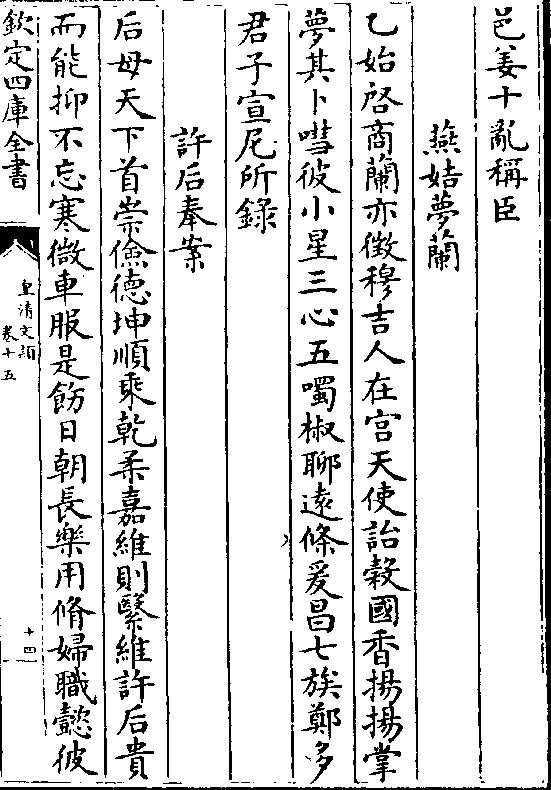 邑姜十亂稱臣
燕姞夢蘭
乙始啓商蘭亦徵穆吉人在宫天使詒穀國香揚揚掌
夢其卜嘒彼小星三心五噣椒聊遠條爰昌七族鄭多
君子宣尼所錄
許后奉案
后母天下首崇儉德坤順乘乾柔嘉維則繄維許后貴
而能抑不忘寒微車服是飭日朝長樂用脩婦職懿彼
欽定四庫全書
皇清文頴
卷十五
十四